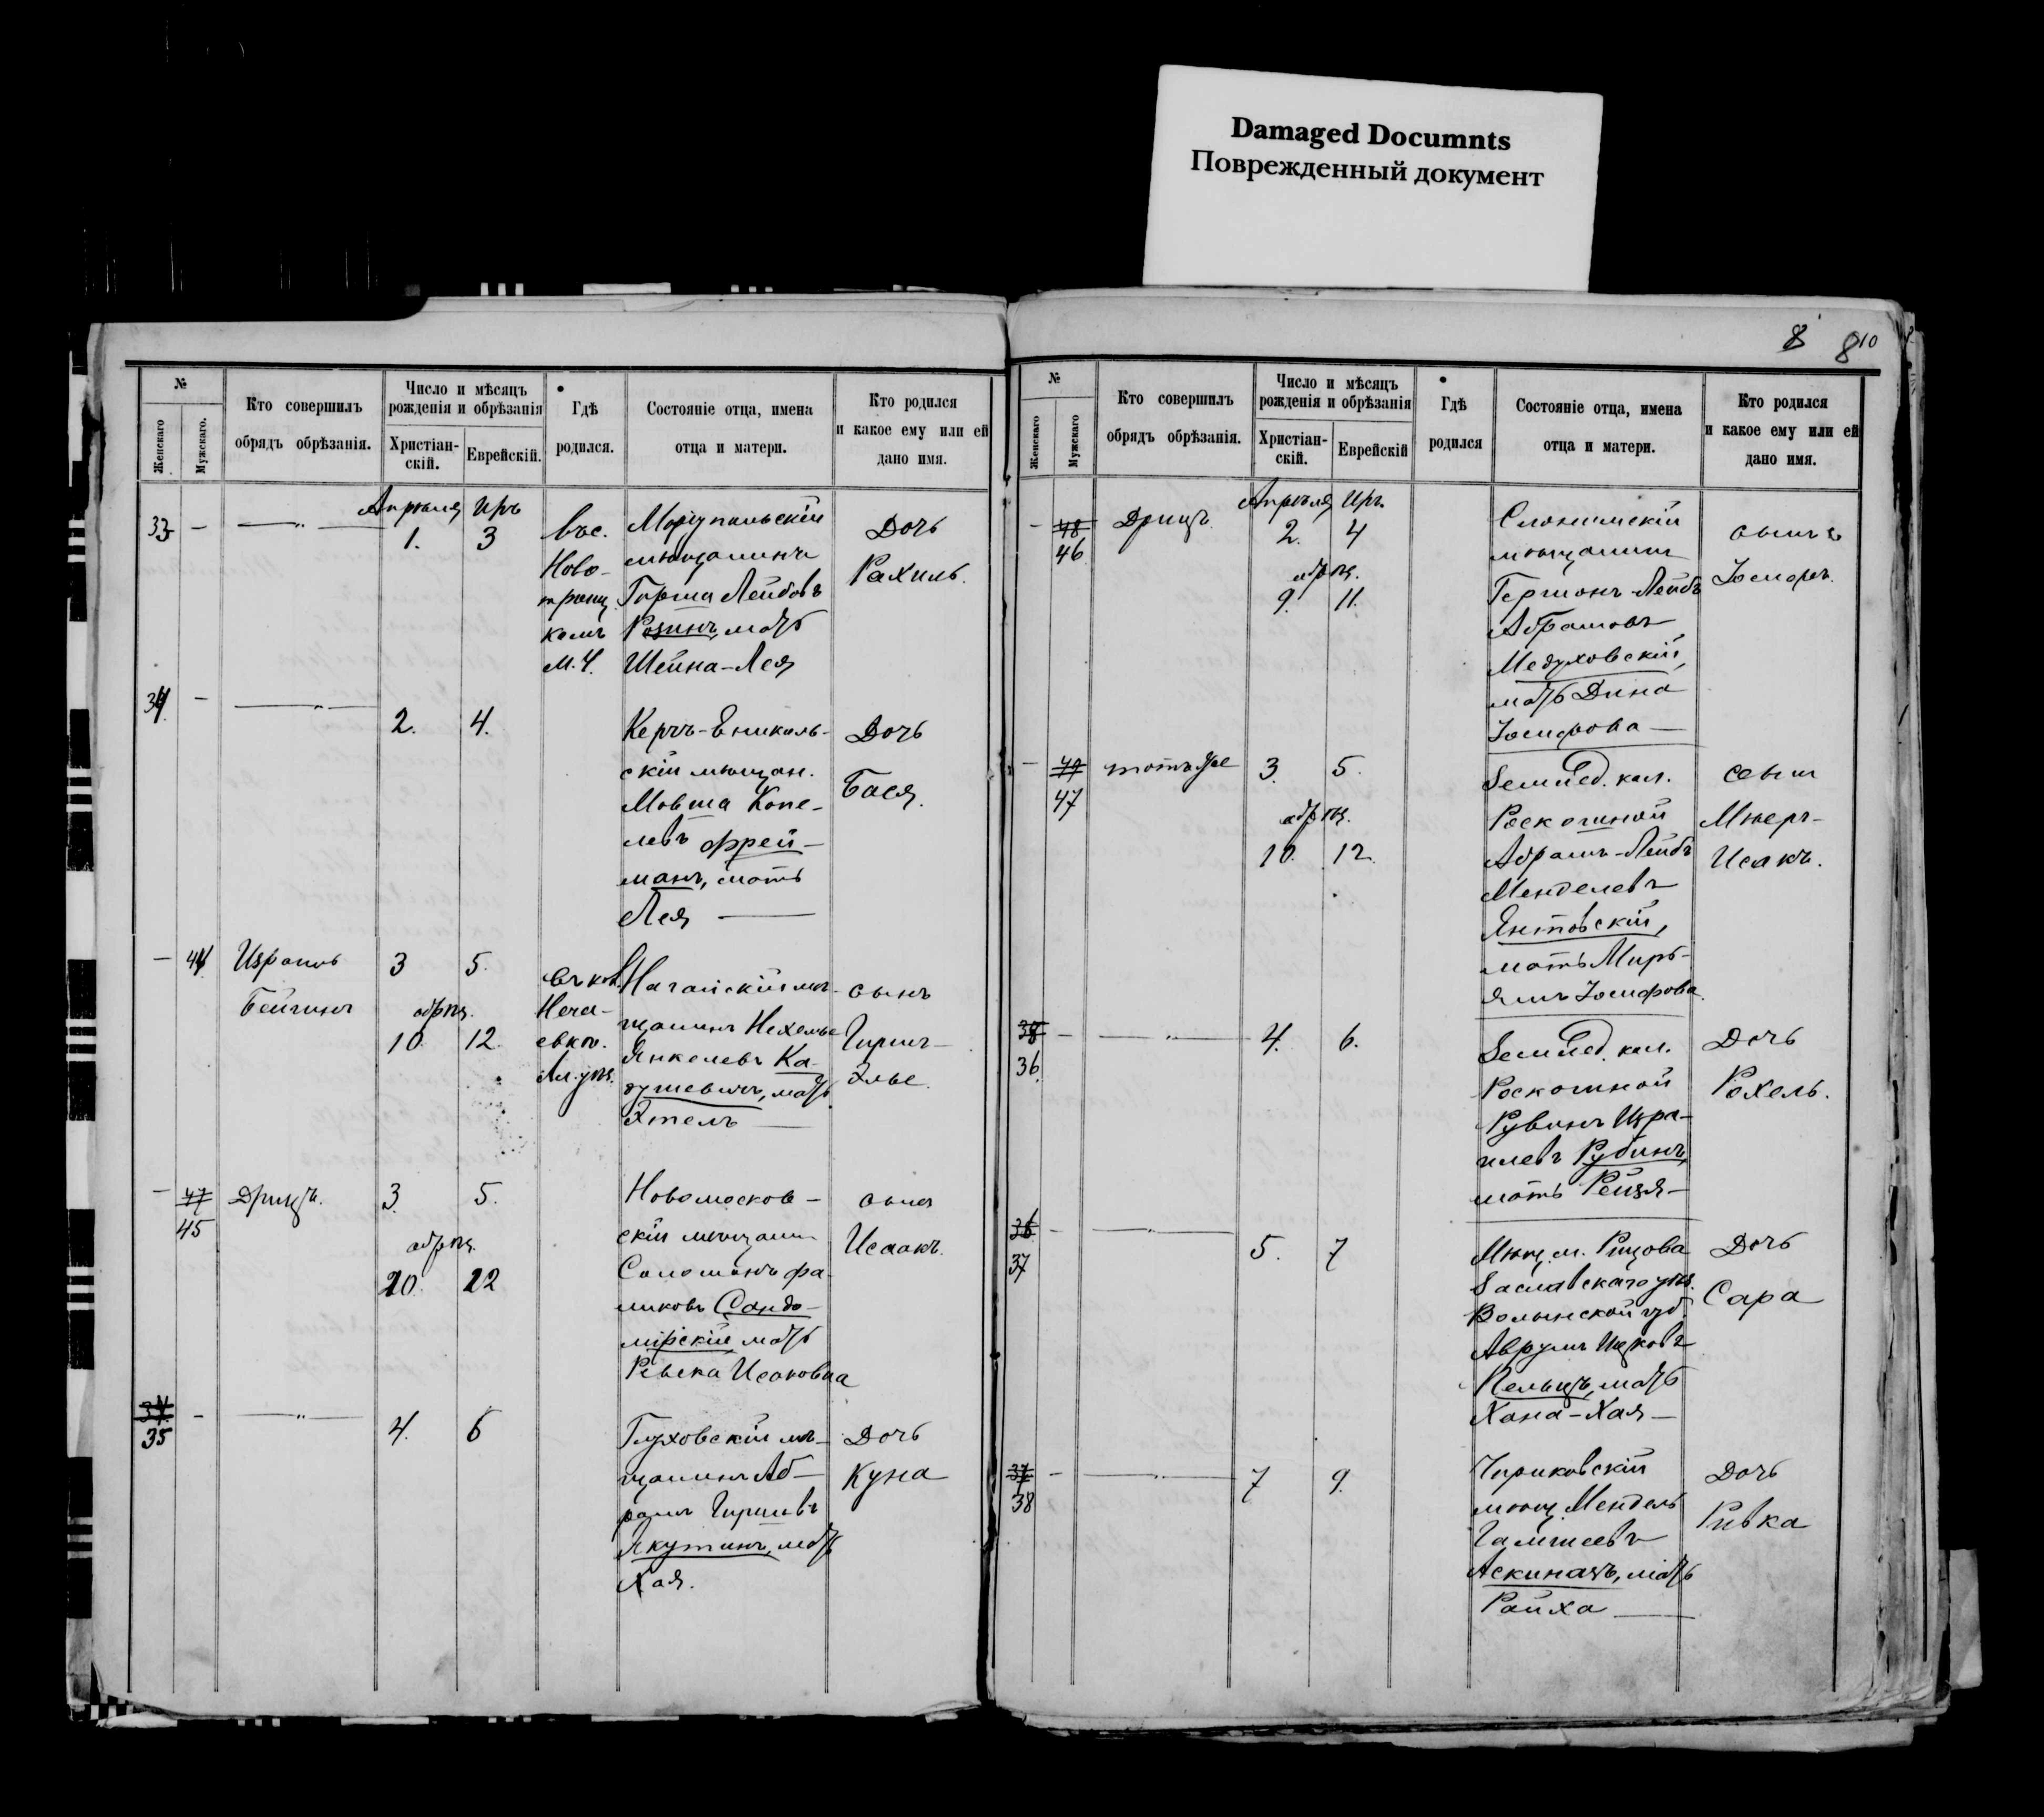 Damaged Documnts
Поврежденный документ
№
Женскаго
Мужскаго.
Кто совершилъ
обрядъ обрѣзанія.
Число и мѣсяцъ
рожденія и обрѣзанія
Христіан-
скій.
Еврейскій.
Гдѣ
родился.
Состояніе отца, имена
отца и матери.
Кто родился
и какое ему или ей
дано имя.
33
Апрѣля Иръ
1. 3
въ с.
Ново-
троиц
комъ
М. У.
Маріупольскій
мѣщанинъ
Гирша Лейбовъ
Розинъ, мать
Шейна-Лея
Дочь
Рахиль.
34.
2. 4.
Керчь-Ениколь-
скій мѣщан.
Мовша Копе-
левъ Фрей-
манъ, мать
Лея
Дочь
Бася.
44
Израиль
Бейгинъ
3 5.
обрѣз.
10. 12.
въ кол.
Неча-
евкѣ.
Ал. уѣз.
Ногайскій мѣ-
щанинъ Нехемье
Янкелевъ Ка-
душевичъ, мать
Этель
сынъ
Гирш-
Элье.
47
45
Дрицъ.
3. 5.
обрѣз.
20. 22
Новомосков-
скій мѣщанин
Соломонъ Фа-
ликовъ Сандо-
мірскій мать
Ревека Исаковна
сынъ
Исаакъ.
34.
35
4. 6
Глуховскій мѣ-
щанинъ Аб-
рамъ Гиршевъ
Якутинъ, мать
Хая.
Дочь
Куна
8 8 10
№
Женскаго
Мужскаго
Кто совершилъ
обрядъ обрѣзанія.
Число и мѣсяцъ
рожденія и обрѣзанія
Христіан-
скій.
Еврейскій
Гдѣ
родился
Состояніе отца, имена
отца и матери.
Кто родился
и какое ему или ей
дано имя.
48
46
Дрицъ.
Апрѣля Иръ.
2. 4
обрѣз.
9. 11.
Слонимскій
мѣщанин
Гершонъ-Лейбъ
Абрамовъ
Медуховскій,
мать Дина
Іосифова
сынъ
Іосифъ.
47
тотъ же
3. 5.
обрѣз.
10. 12.
Землед. кол.
Роскошной
Абрамъ-Лейбъ
Менделевъ
Янтовскій,
мать Мирь-
ямъ Іосифова.
сынъ
Мѣеръ-
Исакъ.
36.
4. 6.
Землед. кол.
Роскошной
Рувинъ Изра-
илевъ Рубинъ,
мать Рейзя
Дочь
Рохель.
36
37
5. 7
Мѣщ. м. Рицова
Заславскаго уѣз.
Волынской губ.
Аврумъ Ицковъ
Пельцъ, мать
Хана-Хая
Дочь
Сара
37
38
7 9.
Чириковскій
мѣщ. Мендель
Гамшеевъ
Аскиназъ, мать
Райха
Дочь
Ривка